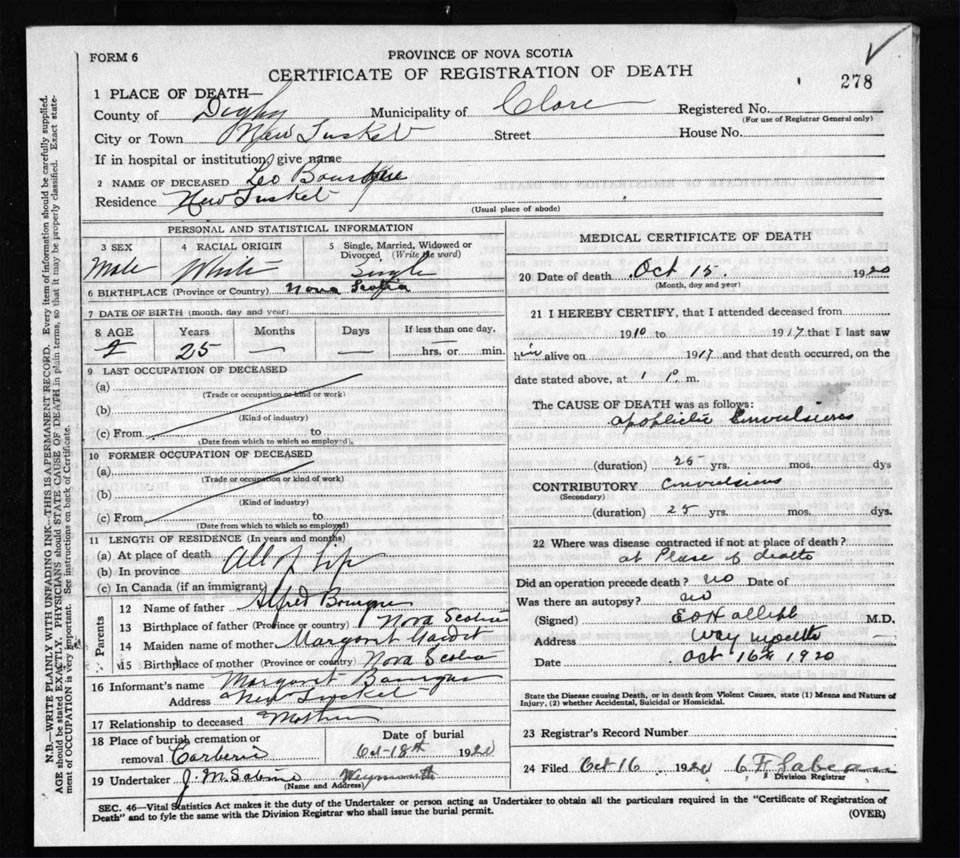 FORM 6
PROVINCE OF NOVA SCOTIA
CERTIFICATE OF REGISTRATION OF DEATH
278
1 PLACE OF DEATH—
County of Digby Municipality of Clare Registered No.
(For use of Registrar General only)
City or Town New Tusket Street House No.
If in hospital or institution, give name
2 NAME OF DECEASED Leo Bourque
Residence New Tusket
(Usual place of abode)
PERSONAL AND STATISTICAL INFORMATION
3 SEX 4 RACIAL ORIGIN 5 Single, Married, Widowed or Divorced (Write the word)
Male White Single
6 BIRTHPLACE (Province or Country) Nova Scotia
7 DATE OF BIRTH (month, day and year)
8 AGE Years Months Days If less than one day,
25 — — hrs. or min.
9 LAST OCCUPATION OF DECEASED
(a)
(Trade or occupation or kind of work)
(b)
(Kind of industry)
(c) From to
(Date from which to which so employed)
10 FORMER OCCUPATION OF DECEASED
(a)
(Trade or occupation or kind of work)
(b)
(Kind of industry)
(c) From to
(Date from which to which so employed)
11 LENGTH OF RESIDENCE (In years and months)
(a) At place of death
(b) In province All of Life
(c) In Canada (if an immigrant)
Parents
12 Name of father Alfred Bourque
13 Birthplace of father (Province or country) Nova Scotia
14 Maiden name of mother Margaret
15 Birthplace of mother (Province or country) Nova Scotia
16 Informant's name Margaret Bourque
Address New Tusket
17 Relationship to deceased Mother
18 Place of burial cremation or Date of burial
removal Corberie Oct 18th 1920
19 Undertaker J. M. Weymouth
(Name and Address)
MEDICAL CERTIFICATE OF DEATH
20 Date of death Oct 15. 1920
(Month, day and year)
21 I HEREBY CERTIFY, that I attended deceased from
1910 to 1917 that I last saw
him alive on 1917 and that death occurred, on the
date stated above, at 1 P. m.
The CAUSE OF DEATH was as follows:
Convulsions
(duration) 25 yrs. mos. dys
CONTRIBUTORY Convulsions
(Secondary)
(duration) 25 yrs. mos. dys.
22 Where was disease contracted if not at place of death?
at Place of death
Did an operation precede death? no Date of
Was there an autopsy? no
(Signed) M.D.
Address Weymouth
Date Oct 16th 1920
State the Disease causing Death, or in death from Violent Causes, state (1) Means and Nature of
Injury, (2) whether Accidental, Suicidal or Homicidal.
23 Registrar's Record Number
24 Filed Oct 16 1920
Division Registrar
SEC. 46—Vital Statistics Act makes it the duty of the Undertaker or person acting as Undertaker to obtain all the particulars required in the "Certificate of Registration of
Death" and to fyle the same with the Division Registrar who shall issue the burial permit.
(OVER)
N.B.—WRITE PLAINLY WITH UNFADING INK—THIS IS A PERMANENT RECORD. Every item of information should be carefully supplied.
AGE should be stated EXACTLY. PHYSICIANS should STATE CAUSE OF DEATH in plain terms, so that it may be properly classified. Exact state-
ment of OCCUPATION is very important. See instructions on back of Certificate.